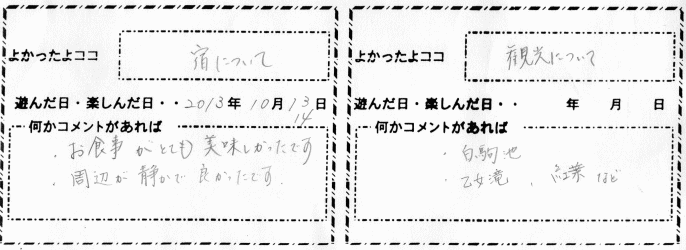 よかったよココ 宿について
遊んだ日・楽しんだ日・・2013年 10月 13日
14
何かコメントがあれば
・お食事がとても美味しかったです
・周辺が静かで良かったです.
よかったよココ 観光について
遊んだ日・楽しんだ日・・ 年 月 日
何かコメントがあれば
・白駒池
・乙女滝、紅葉など